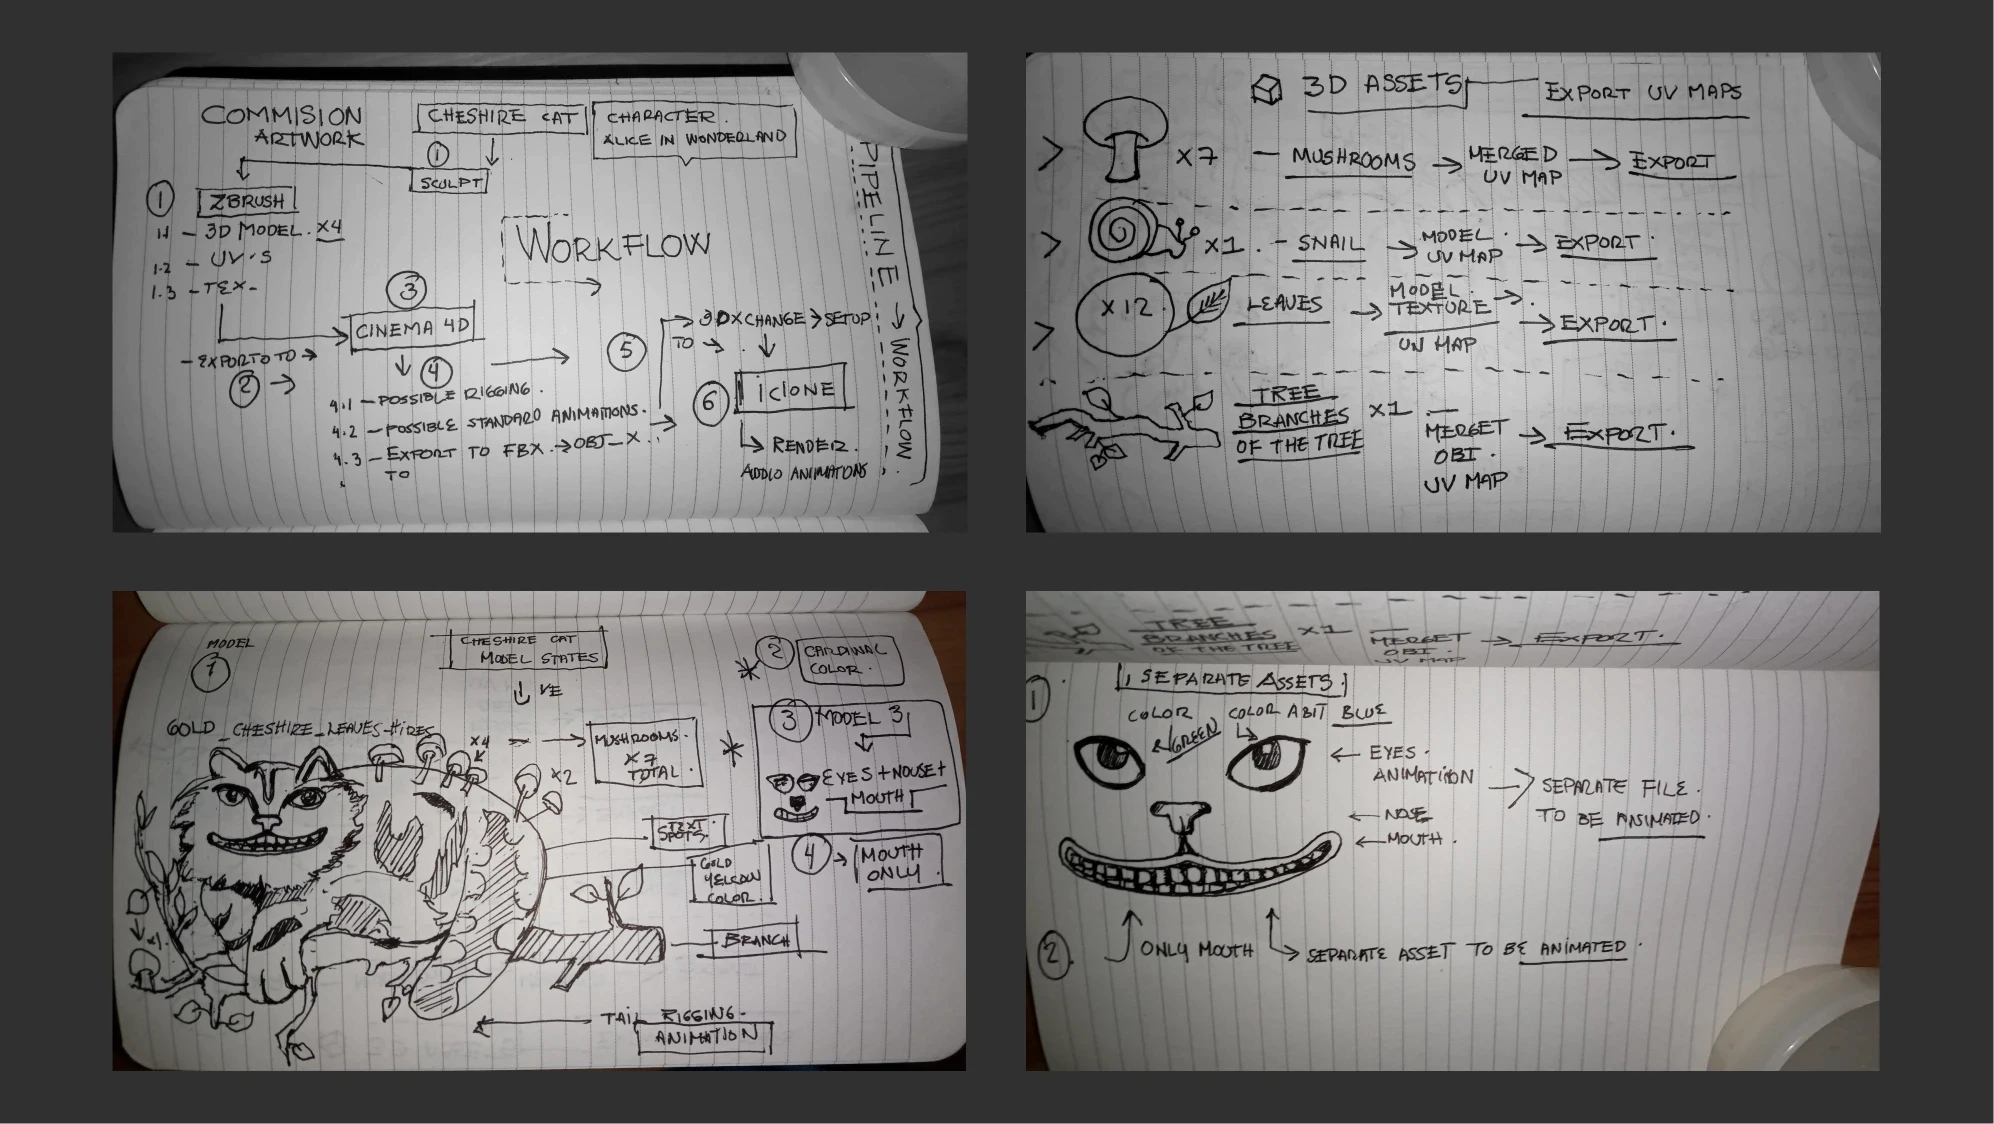 COMMISION
ARTWORK
CHESHIRE CAT
CHARACTER.
ALICE IN WONDERLAND
1
SCULPT
1
ZBRUSH
1.1 - 3D MODEL. X4
1.2 - UV'S
1.3 - TEX-
WORKFLOW
PIPELINE → WORKFLOW
3
CINEMA 4D
- EXPORTO TO →
2 →
4
4.1 - POSSIBLE RIGGING.
4.2 - POSSIBLE STANDARD ANIMATIONS.
4.3 - EXPORT TO FBX. → OBJ - X.
TO
5
3DXCHANGE → SETUP
TO →
6
iCLONE
RENDER.
3D ASSETS
EXPORT UV MAPS
> X7 - MUSHROOMS → MERGED → EXPORT
UV MAP
> X1. - SNAIL → MODEL. → EXPORT.
UV MAP
> X12 LEAVES → MODEL. →
TEXTURE → EXPORT.
UN MAP
TREE
BRANCHES X1 -
OF THE TREE
MERGET → EXPORT.
OBJ.
UV MAP
MODEL
1
CHESHIRE CAT
MODEL STATES
GOLD_CHESHIRE_LEAVES-HIRES
X4
X2
MUSHROOMS.
X7
TOTAL.
* 2 CARDINAL
COLOR.
* 3 MODEL 3
EYES + NOUSE +
MOUTH
4 → MOUTH
ONLY.
SPOTS.
GOLD
YELLOW
COLOR.
BRANCH
TAIL RIGGING-
ANIMATION
TREE
BRANCHES X1
OF THE TREE
MERGET → EXPORT.
OBJ.
UV MAP
1. SEPARATE ASSETS.
COLOR
GREEN
COLOR A BIT BLUE
← EYES.
ANIMATION
SEPARATE FILE.
TO BE ANIMATED.
← NOSE
← MOUTH.
2. ONLY MOUTH
SEPARATE ASSET TO BE ANIMATED.